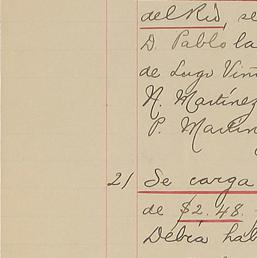 del Rio, se
D. Pablo la
de Lugo Viñ
N. Martínez
P. Martin
21 Se carga
de $2.48.
Debía hab